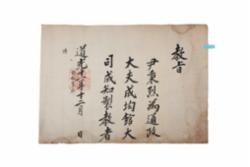 教旨
尹秉烈爲通政
大夫成均館大
司成知製教者
道光十 年十二月 日